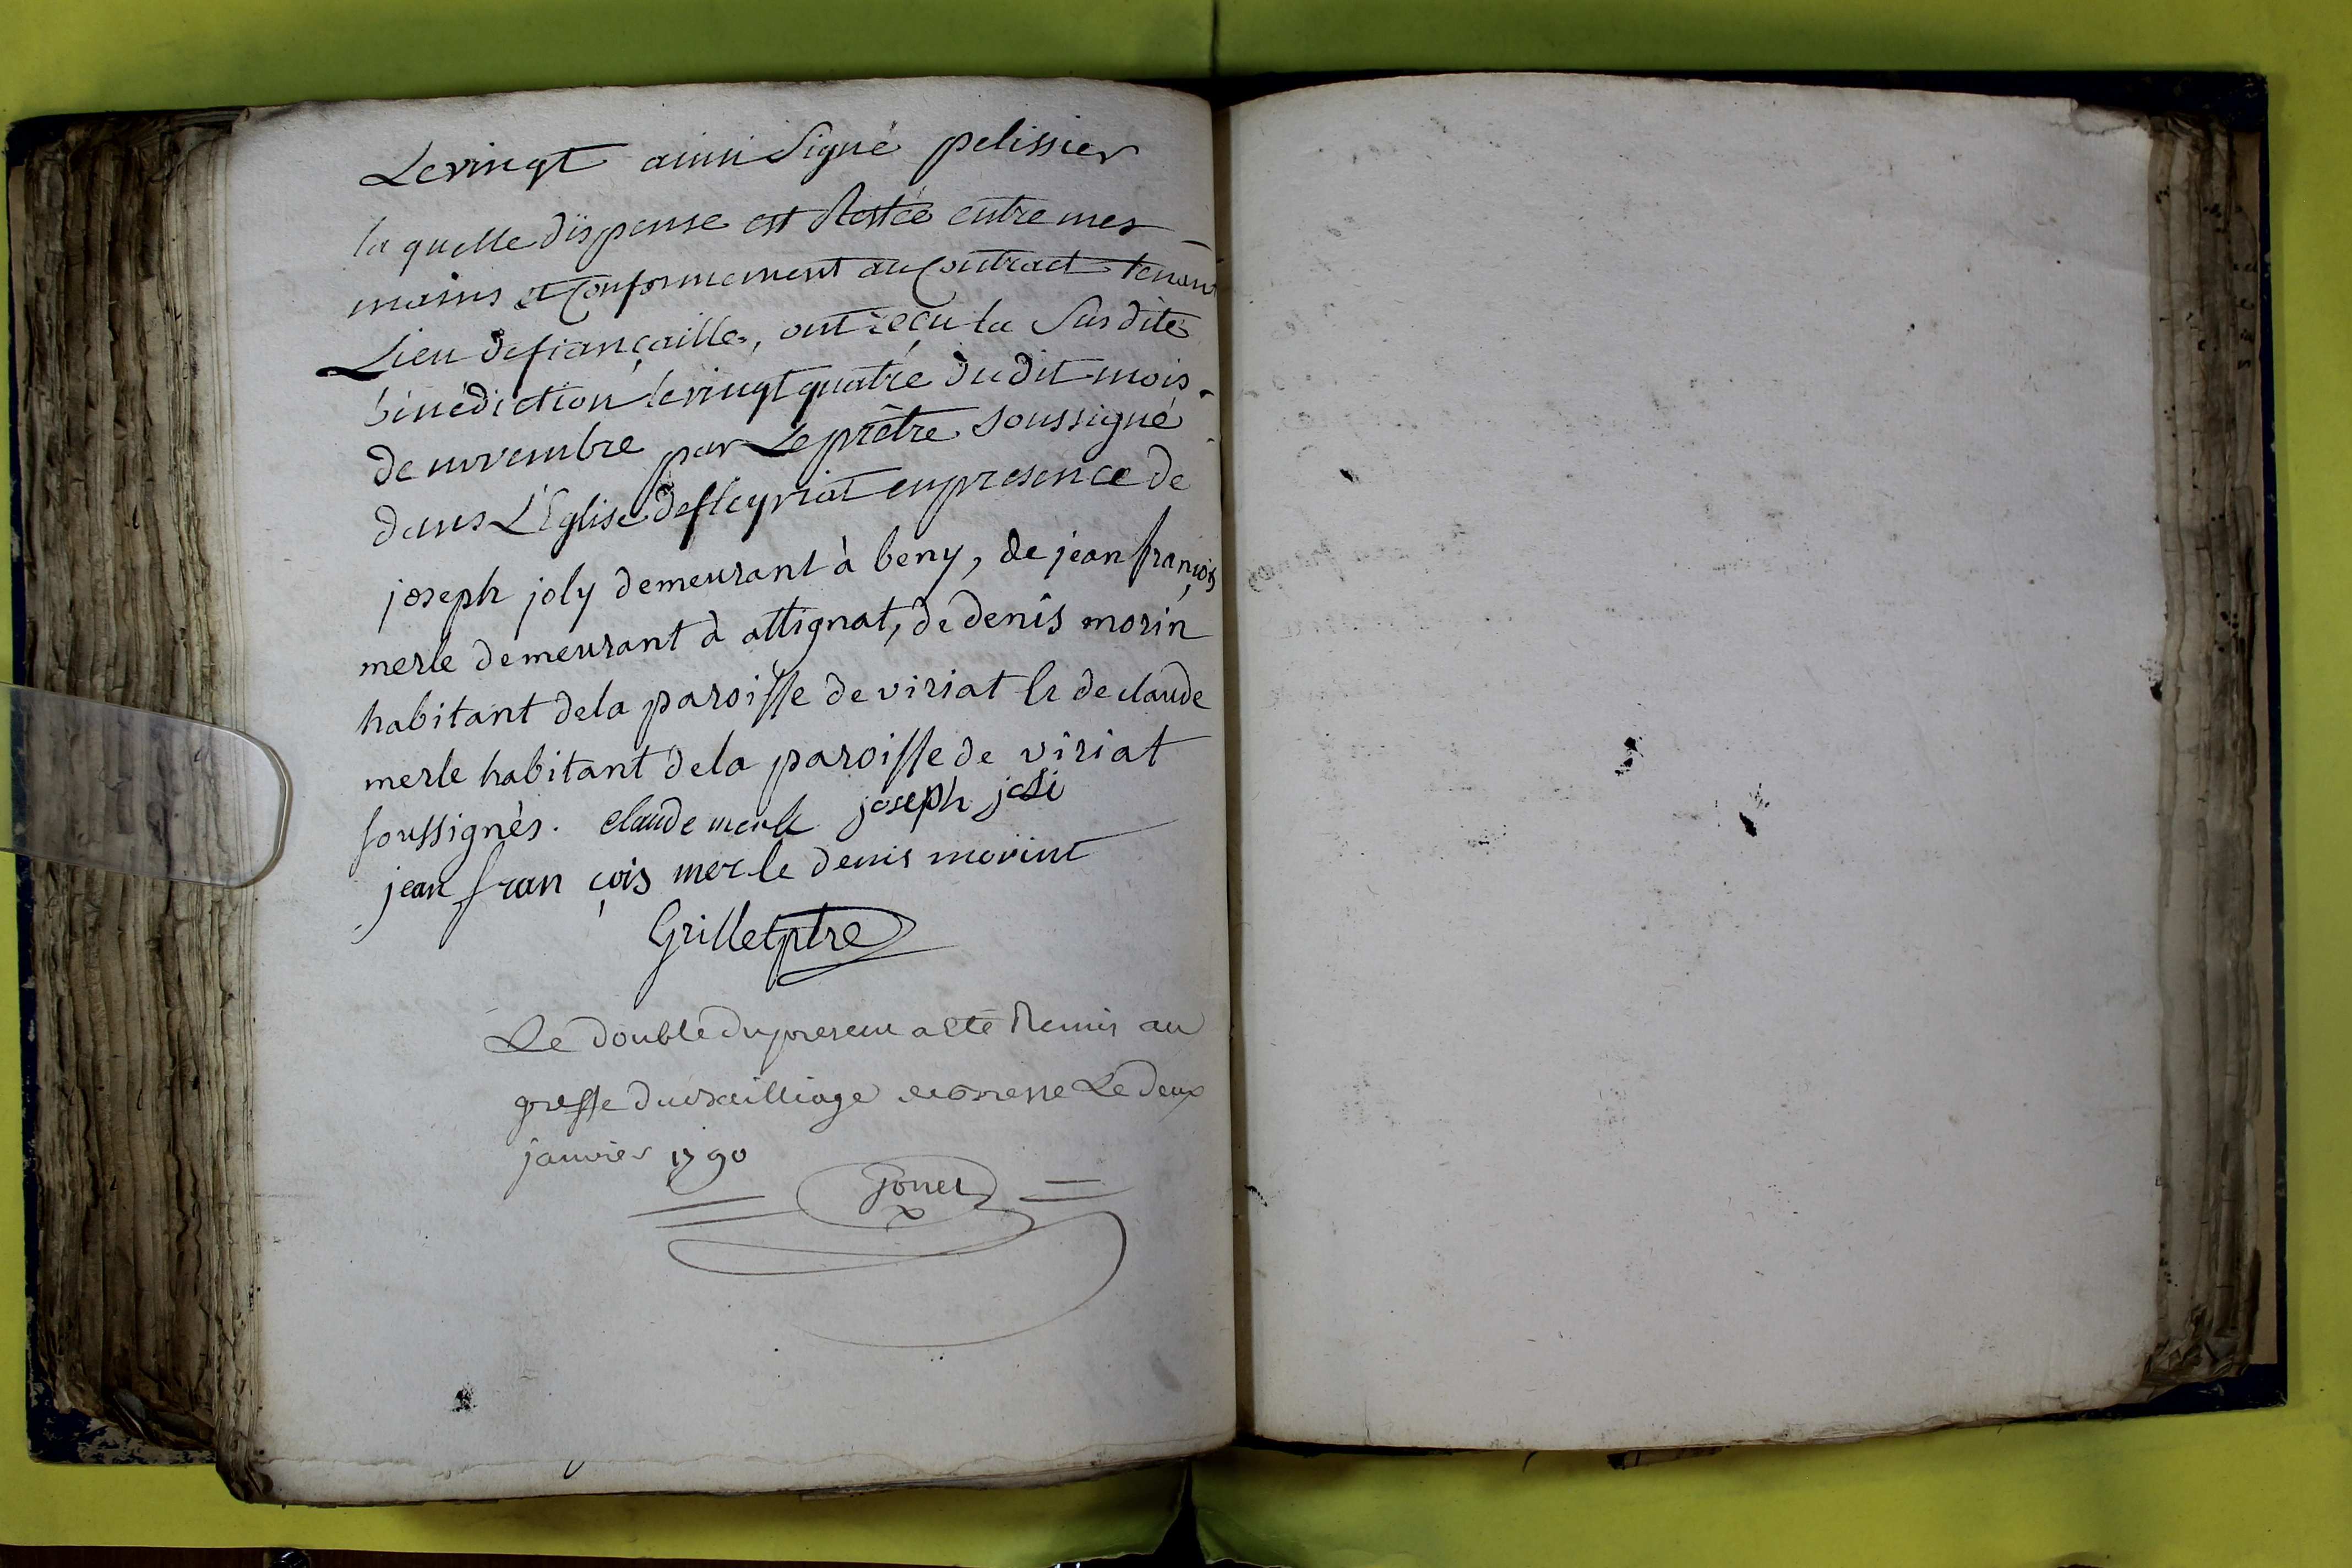 Le vingt ainsi Signé pelissier
la quelle dispense est Restée entre mes
mains et Conformement au Contract tenant
Lieu de fiançailles, ont reçu la Susdite
bénédiction le vingt quatre du dit mois
de novembre par Le prêtre soussigné
dans L'Eglise de fleyriat en presence de
joseph joly demeurant à beny, de jean françois
merle demeurant à attignat, de denis morin
habitant de la paroisse de viriat & de claude
merle habitant de la paroisse de viriat
soussignés. claude merle joseph joli
jean fran çois merle denis morint
Grillet ptre
Le double du present a été Remis au
greffe du Bailliage de Bresse Le deux
janvier 1790